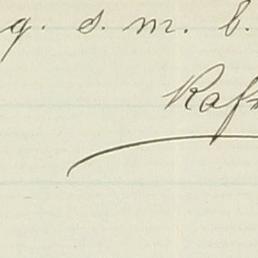 q. s. m. b.
Raf